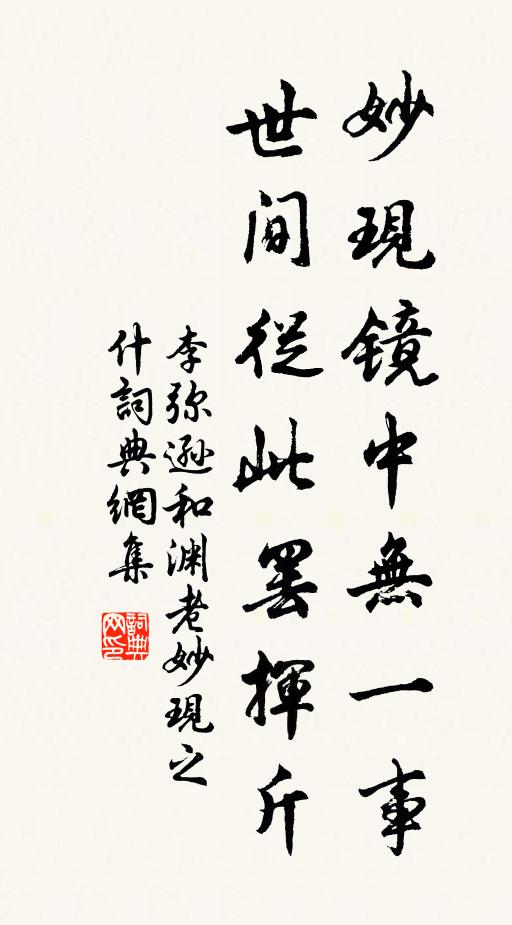 妙現鏡中無一事
世间從此罢揮斤
李弥逊和渊老妙現之
什詞典網集
詞典网印